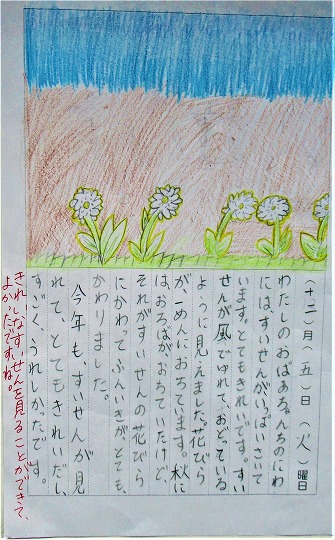 (十二)月(五)日(火)曜日
わたしのおばあちゃんちのにわ
には、すいせんが、いっぱいさいて
います。とてもきれいです。すい
せんが風でゆれて、おどっている
ように見えました。花びら
が一めんにおちています。秋に
は、おちばが、おちていたけど、
それがすいせんの花びら
にかわって、ふんいきが、とても、
かわりました。
今年も、すいせんが見
れて、とてもきれいだし、
すごく、うれしかったです。
きれいなすいせんを見ることができて、
よかったですね。